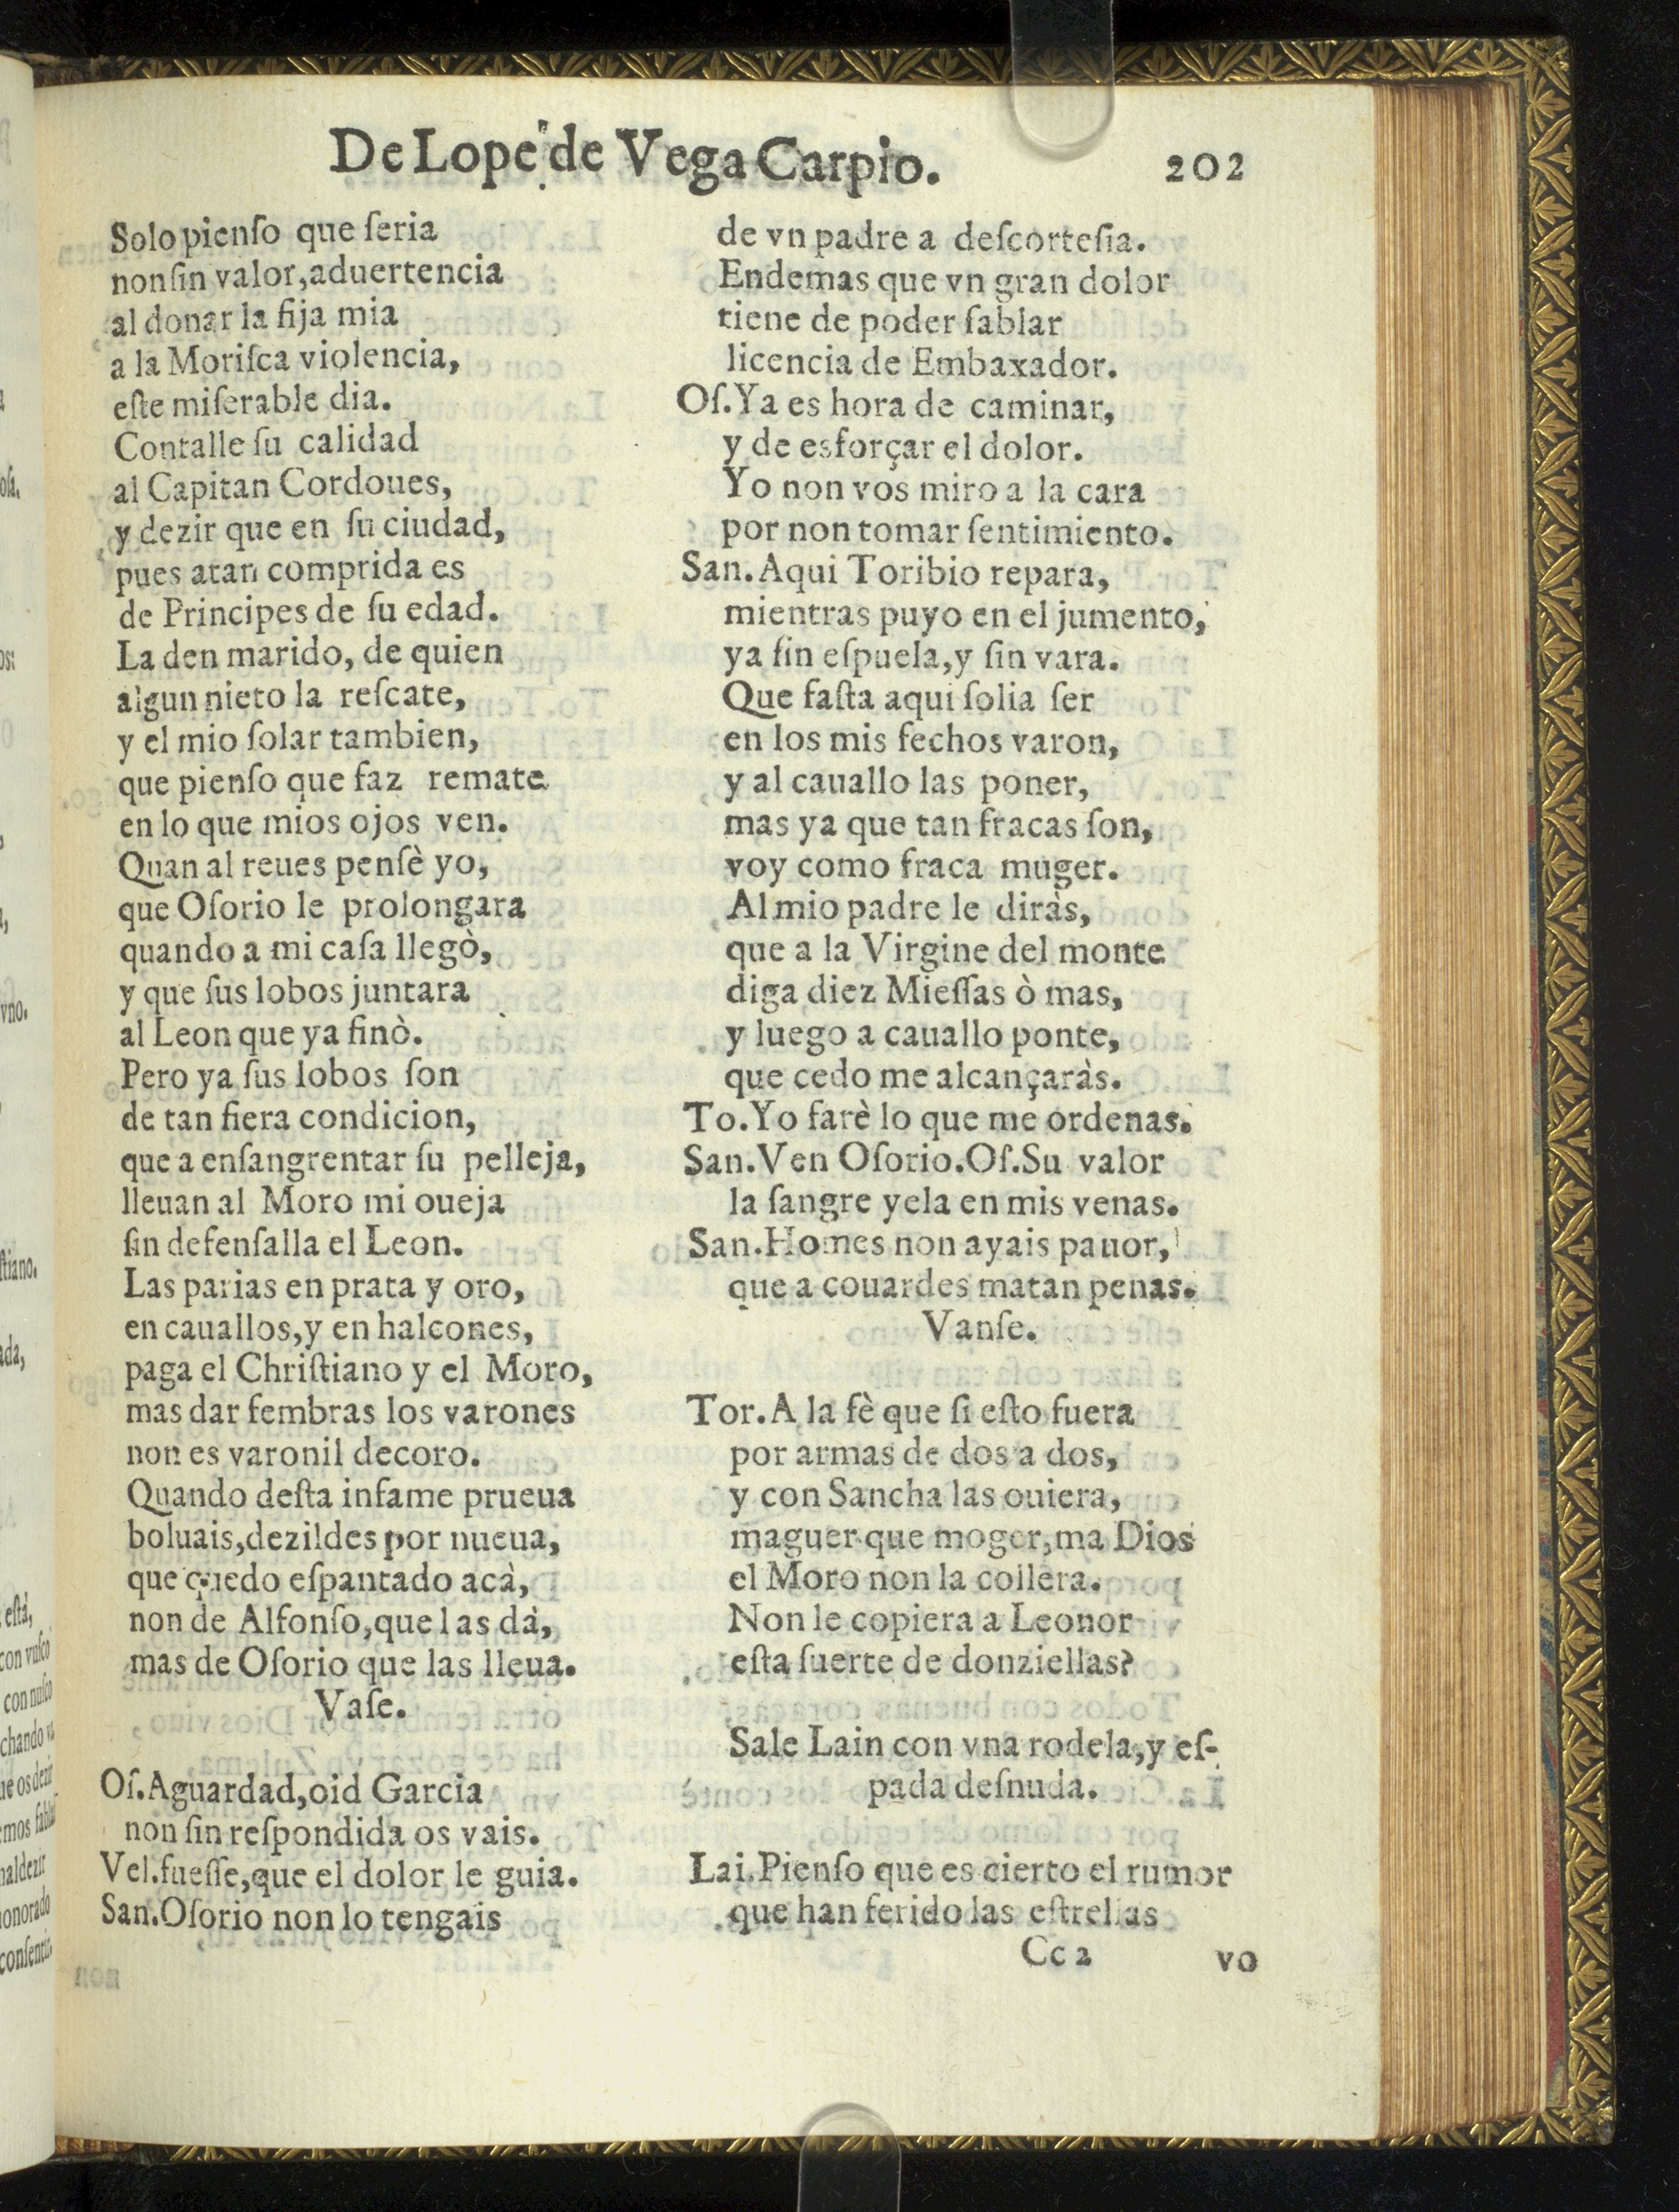 De Lope de Vega Carpio. 202
Solo pienſo que ſeria
non ſin valor, aduertencia
al donar la fija mia
a la Moriſca violencia,
eſte miſerable dia.
Contalle ſu calidad
al Capitan Cordoues,
y dezir que en ſu ciudad,
pues atan comprida es
de Principes de ſu edad.
La den marido, de quien
algun nieto la reſcate,
y el mio ſolar tambien,
que pienſo que faz remate
en lo que mios ojos ven.
Quan al reues penſè yo,
que Oſorio le prolongara
quando a mi caſa llegò,
y que ſus lobos juntara
al Leon que ya finò.
Pero ya ſus lobos ſon
de tan fiera condicion,
que a enſangrentar ſu pelleja,
lleuan al Moro mi oueja
ſin defenſalla el Leon.
Las parias en prata y oro,
en cauallos, y en halcones,
paga el Chriſtiano y el Moro,
mas dar fembras los varones
non es varonil decoro.
Quando deſta infame prueua
boluais, dezildes por nueua,
que quedo eſpantado acà,
non de Alfonſo, que las dà,
mas de Oſorio que las lleua.
Vaſe.
Oſ. Aguardad, oid Garcia
non ſin reſpondida os vais.
Vel. fueſſe, que el dolor le guia.
San. Oſorio non lo tengais
de vn padre a deſcorteſia.
Endemas que vn gran dolor
tiene de poder fablar
licencia de Embaxador.
Oſ. Ya es hora de caminar,
y de esforçar el dolor.
Yo non vos miro a la cara
por non tomar ſentimiento.
San. Aqui Toribio repara,
mientras puyo en el jumento,
ya ſin eſpuela, y ſin vara.
Que faſta aqui ſolia ſer
en los mis fechos varon,
y al cauallo las poner,
mas ya que tan fracas ſon,
voy como fraca muger.
Al mio padre le diràs,
que a la Virgine del monte
diga diez Mieſſas ò mas,
y luego a cauallo ponte,
que cedo me alcançaràs.
To. Yo farè lo que me ordenas.
San. Ven Oſorio. Oſ. Su valor
la ſangre yela en mis venas.
San. Homes non ayais pauor,
que a couardes matan penas.
Vanſe.
Tor. A la fè que ſi eſto fuera
por armas de dos a dos,
y con Sancha las ouiera,
maguer que moger, ma Dios
el Moro non la collera.
Non le copiera a Leonor
eſta ſuerte de donziellas?
Sale Lain con vna rodela, y eſ-
pada deſnuda.
Lai. Pienſo que es cierto el rumor
que han ferido las eſtrellas
Cc 2 vo